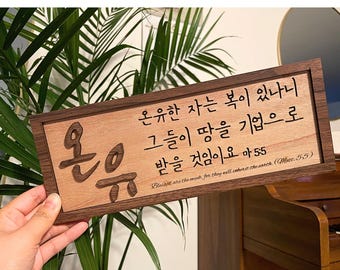 온유
온유한 자는 복이 있나니
그들이 땅을 기업으로
받을 것임이요 마 5:5
Blessed are the meek, for they will inherit the earth. (Matt 5:5)